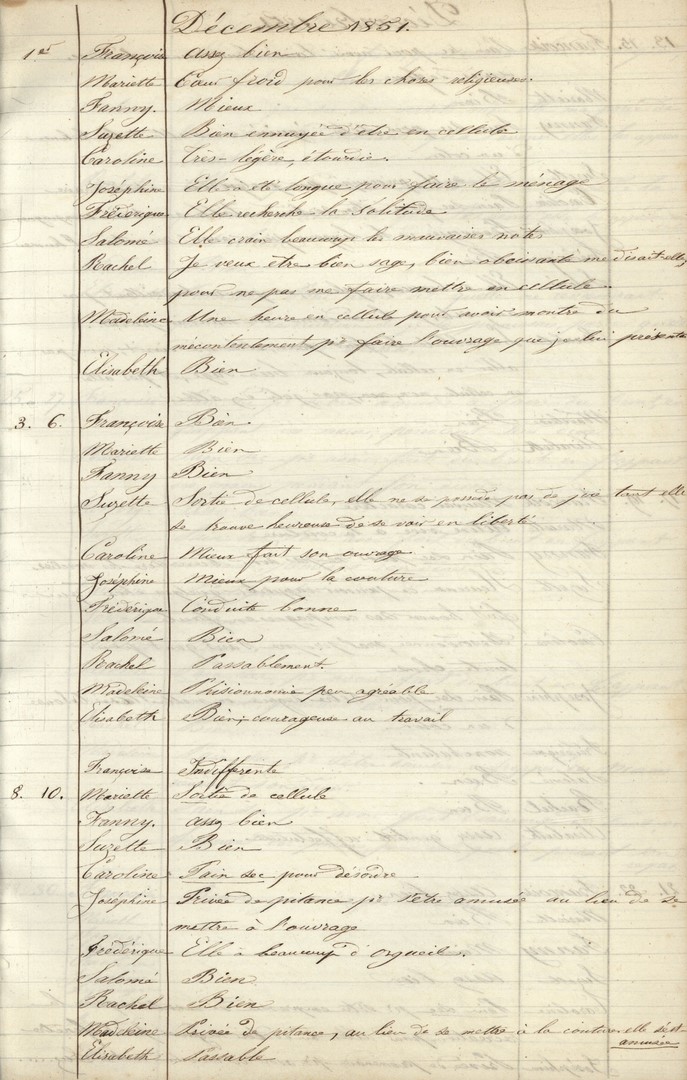 Décembre 1851.
1er Françoise assez bien
Mariette Cœur froid pour les choses religieuses.
Fanny. Mieux
Suzette Bien ennuyée d'être en cellule
Caroline Très-légère, étourdie.
Joséphine Elle a été longue pour faire le ménage
Fréderique Elle recherche la solitude
Salomé Elle crain beaucoup les mauvaises notes
Rachel Je veux être bien sage, bien obéissante me disait-elle,
pour ne pas me faire mettre en cellule.
Madeleine Une heure en cellule pour avoir montré du
mécontentement pr faire l'ouvrage que je lui présente
Elisabeth Bien
3. 6. Françoise Bien
Mariette Bien
Fanny Bien
Suzette Sortie de cellule, elle ne se possède pas de joie tant elle
se trouve heureuse de se voir en liberté
Caroline Mieux fait son ouvrage
Joséphine Mieux pour la couture
Frédérique Conduite bonne
Salomé Bien
Rachel Passablement
Madeleine Phisionnomie peu agréable
Elisabeth Bien, courageuse au travail
Françoise Indifférente
8. 10. Mariette Sortie de cellule
Fanny. assez bien
Suzette Bien
Caroline Pain sec pour désordre
Joséphine Privée de pitance pr s'être amusée au lieu de se
mettre à l'ouvrage
Frédérique Elle a beaucoup d'orgueil.
Salomé Bien
Rachel Bien
Madeleine Privée de pitance, au lieu de se mettre à la couture elle s'est
amusée
Elisabeth Passable